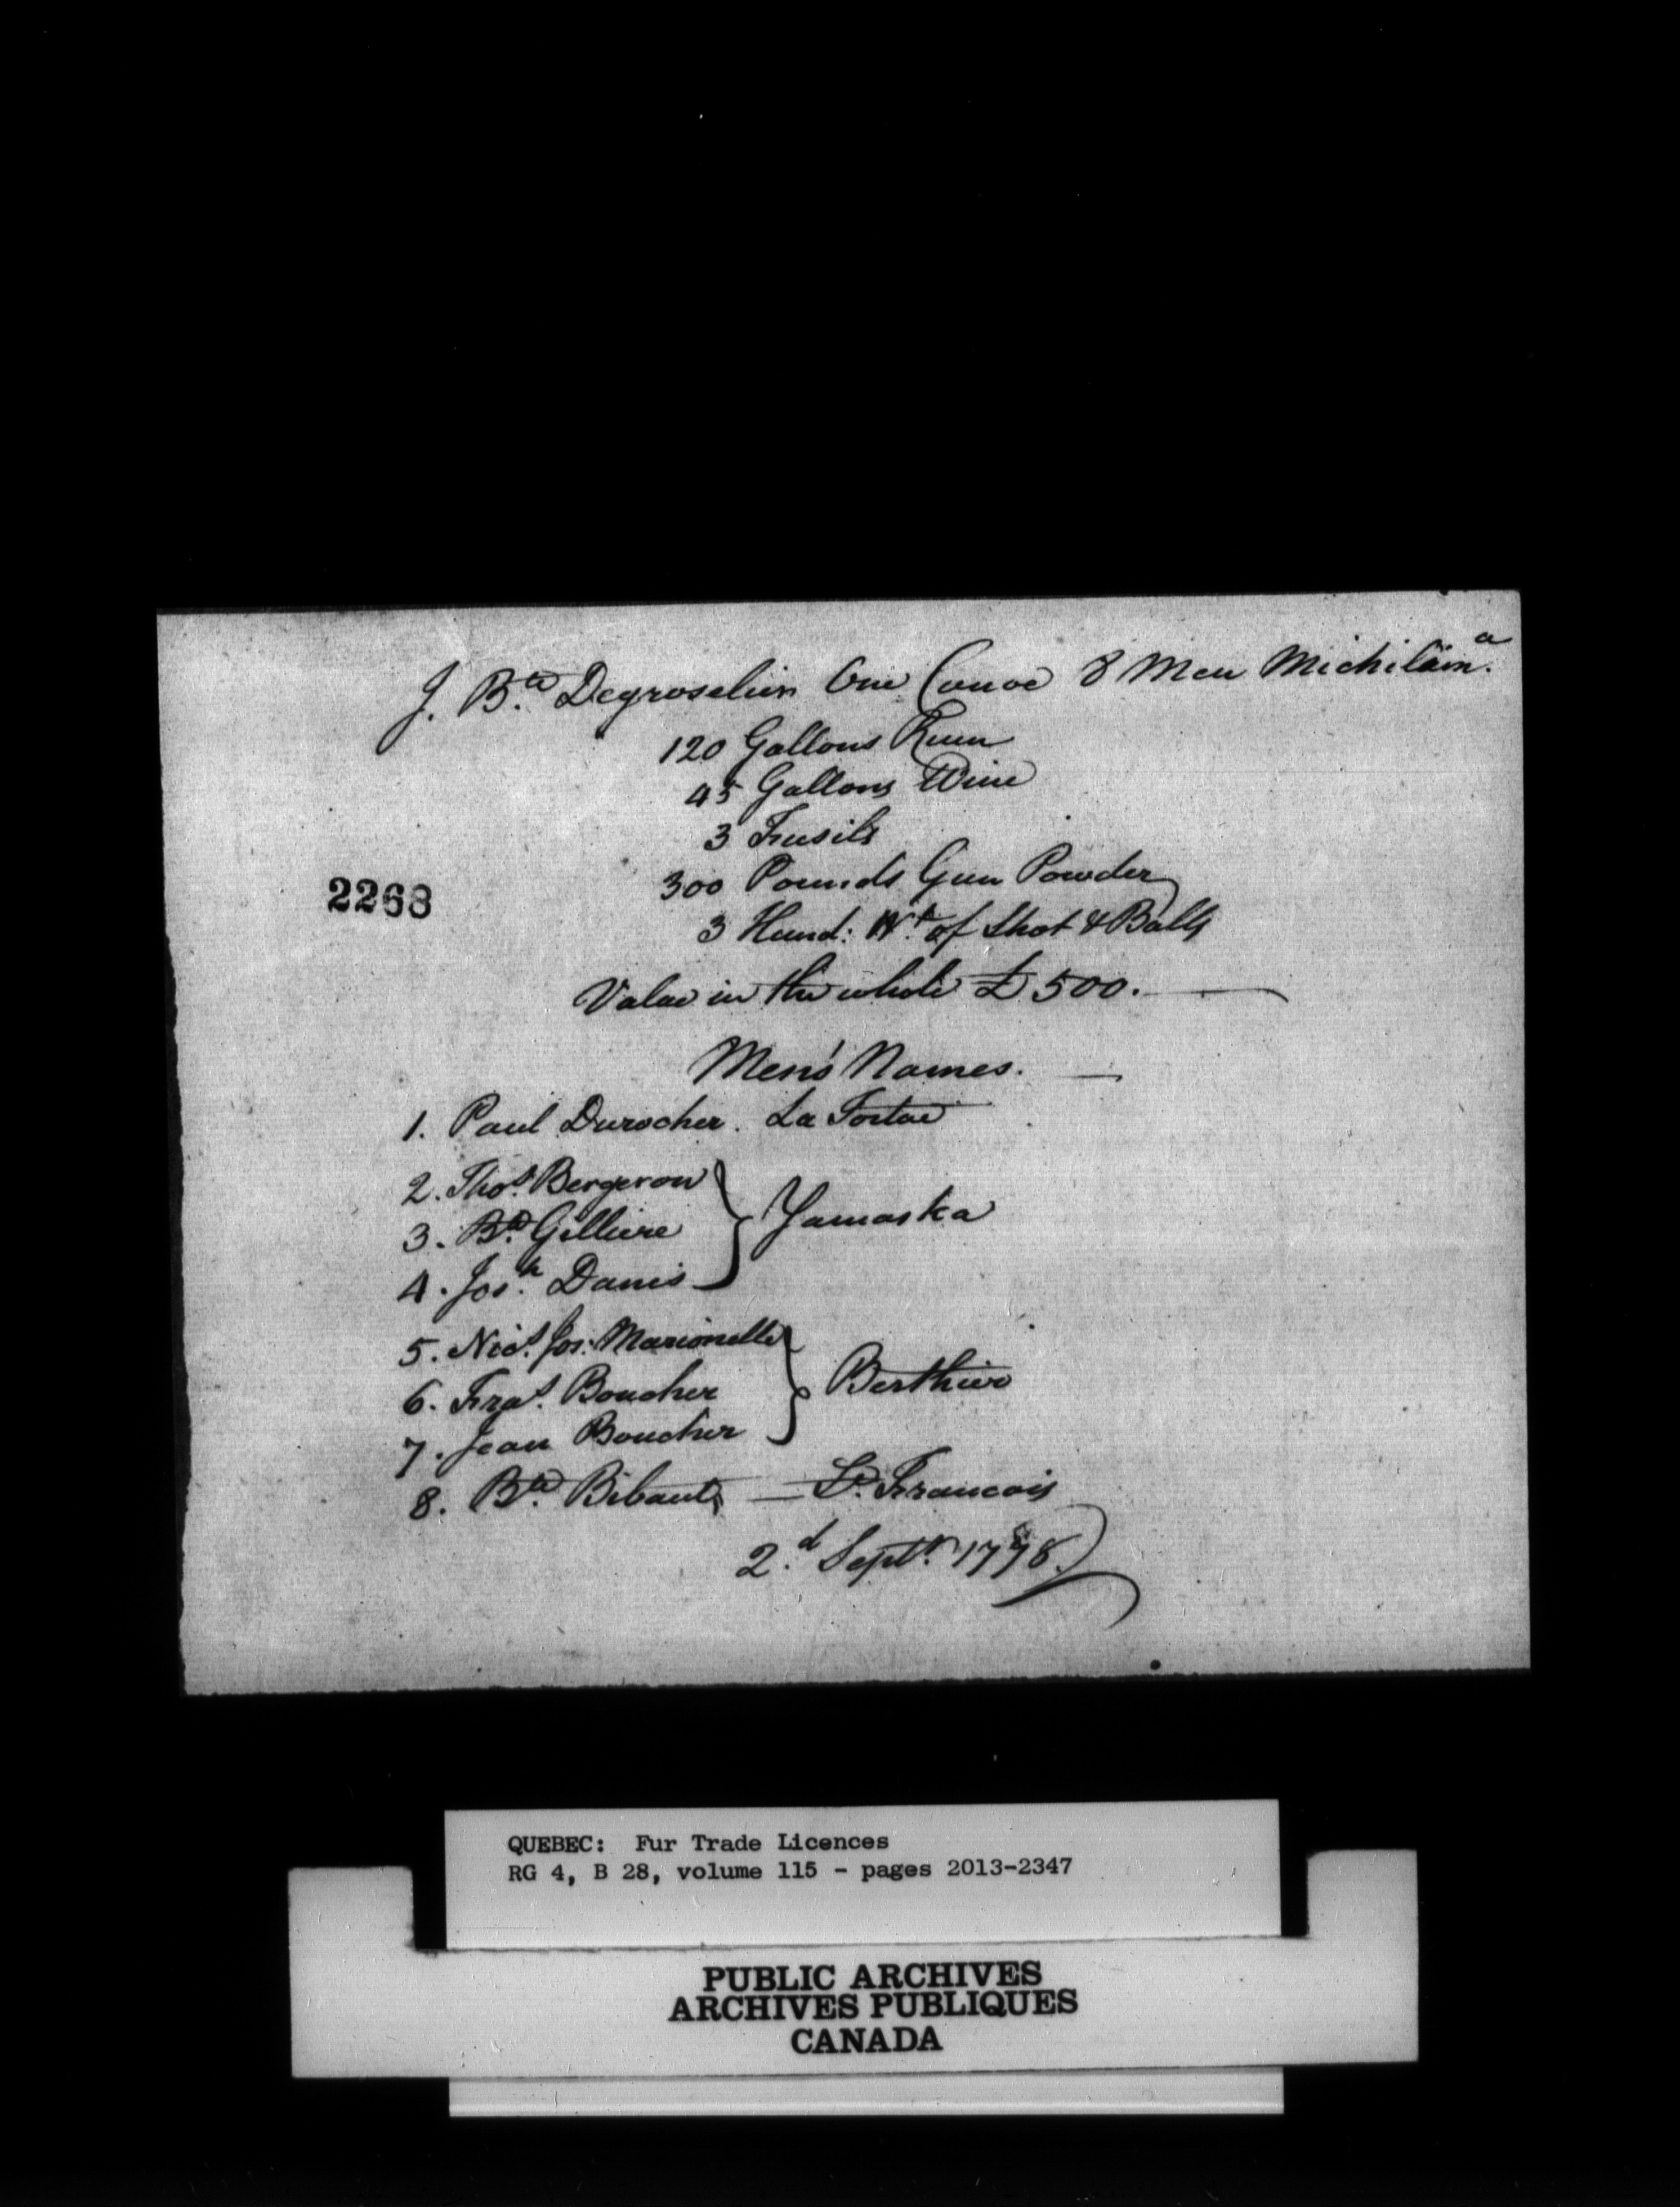 J. Bte. Degroselier One Canoe 8 Men Michilima.
120 Gallons Rum
45 Gallons Wine
3 Fusils
300 Pounds Gun Powder
2268
3 Hund: Wt. of Shot & Balls
Value in the whole £500.
Men's Names.
1. Paul Durocher. La Tortue
2. Thos. Bergeron
3. Bte. Gilliere
Yamaska
4. Josh. Danis
5. Nics. Jos: Marionelle
6. Fras. Boucher
Berthier
7. Jean Boucher
8. Bte. Bibaut, — St. Francois
2.d Septr. 1778.
QUEBEC: Fur Trade Licences
RG 4, B 28, volume 115 - pages 2013-2347
PUBLIC ARCHIVES
ARCHIVES PUBLIQUES
CANADA